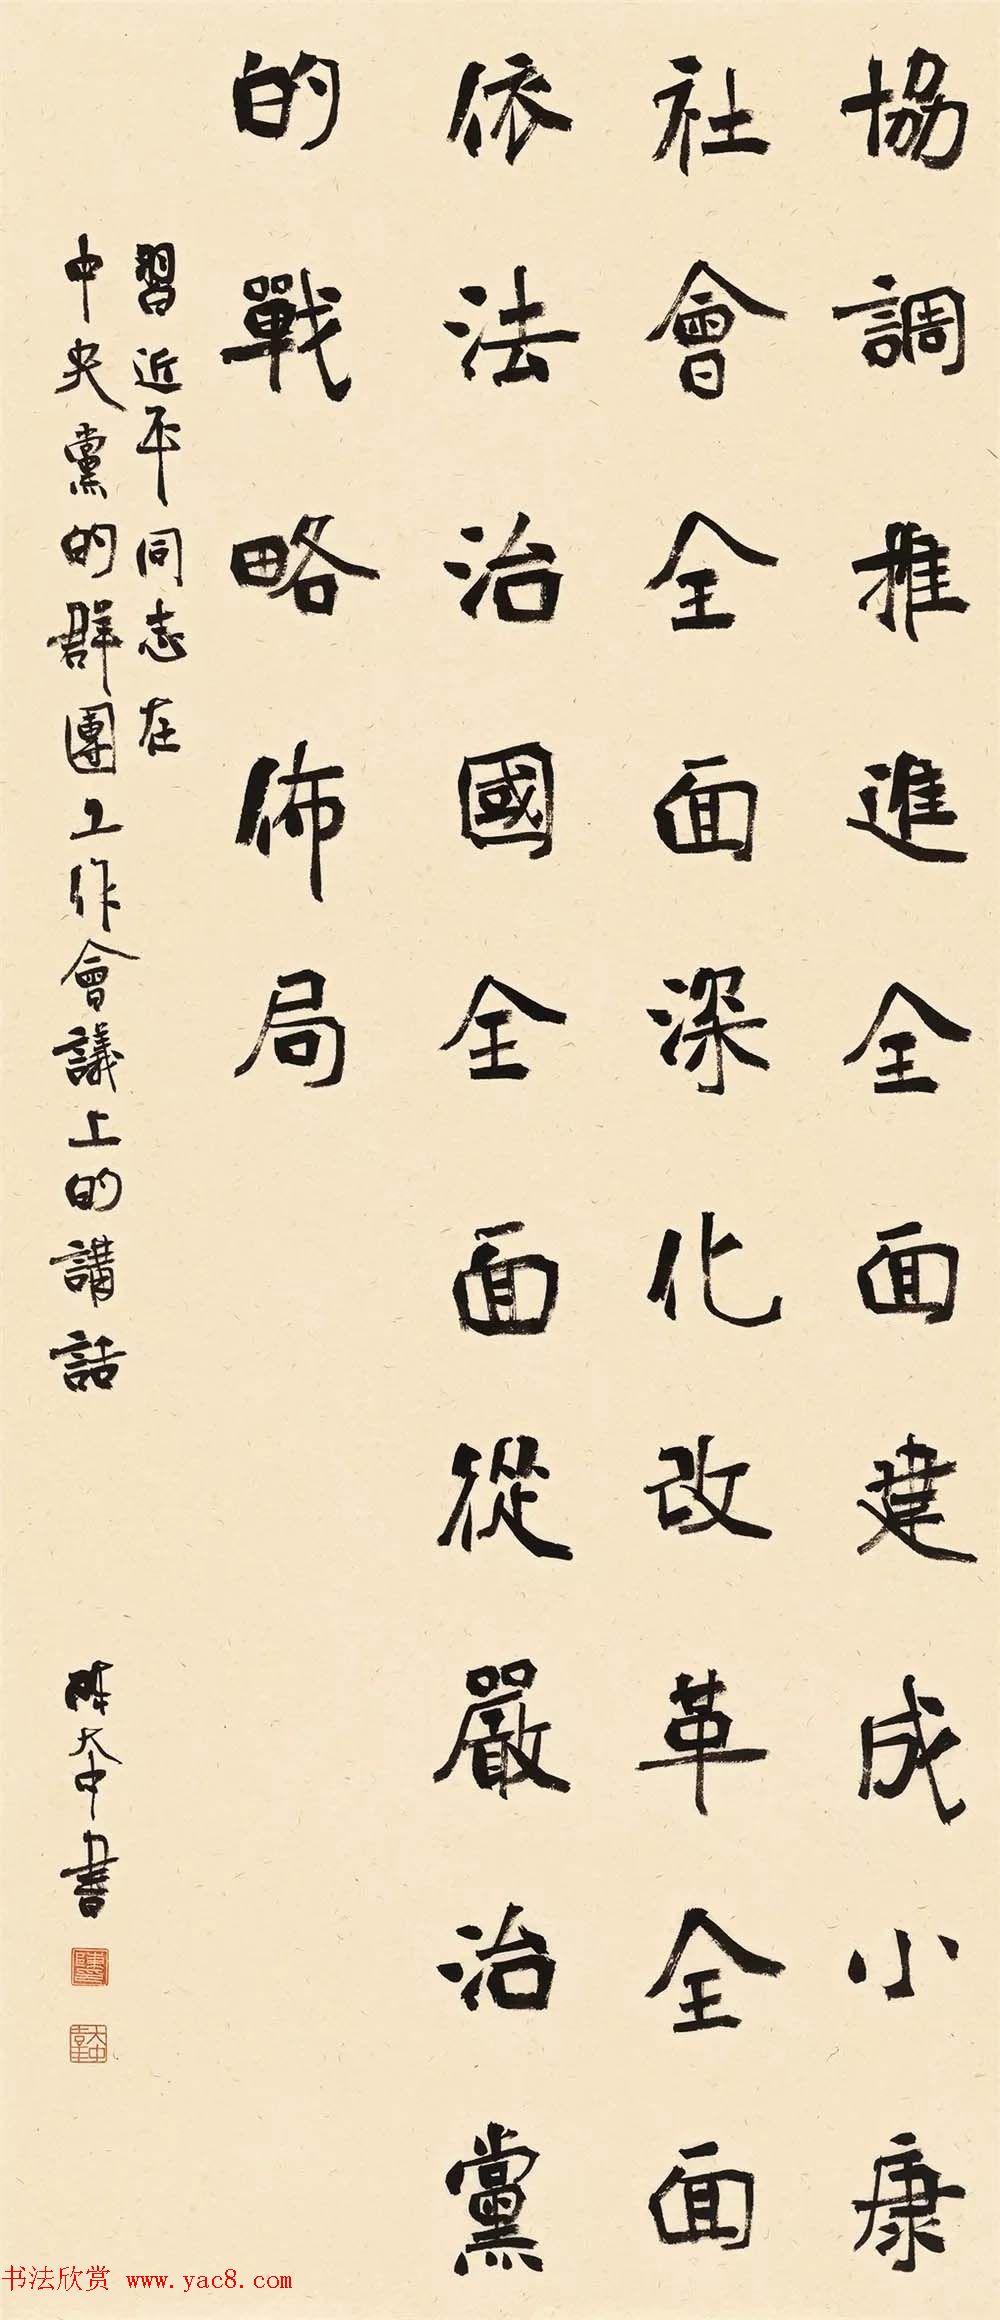 協調推進全面建成小康
社會全面深化改革全面
依法治國全面從嚴治黨
的戰略佈局
習近平同志在
中央黨的群團工作會議上的講話
陳大中書
书法欣赏 www.yac8.com